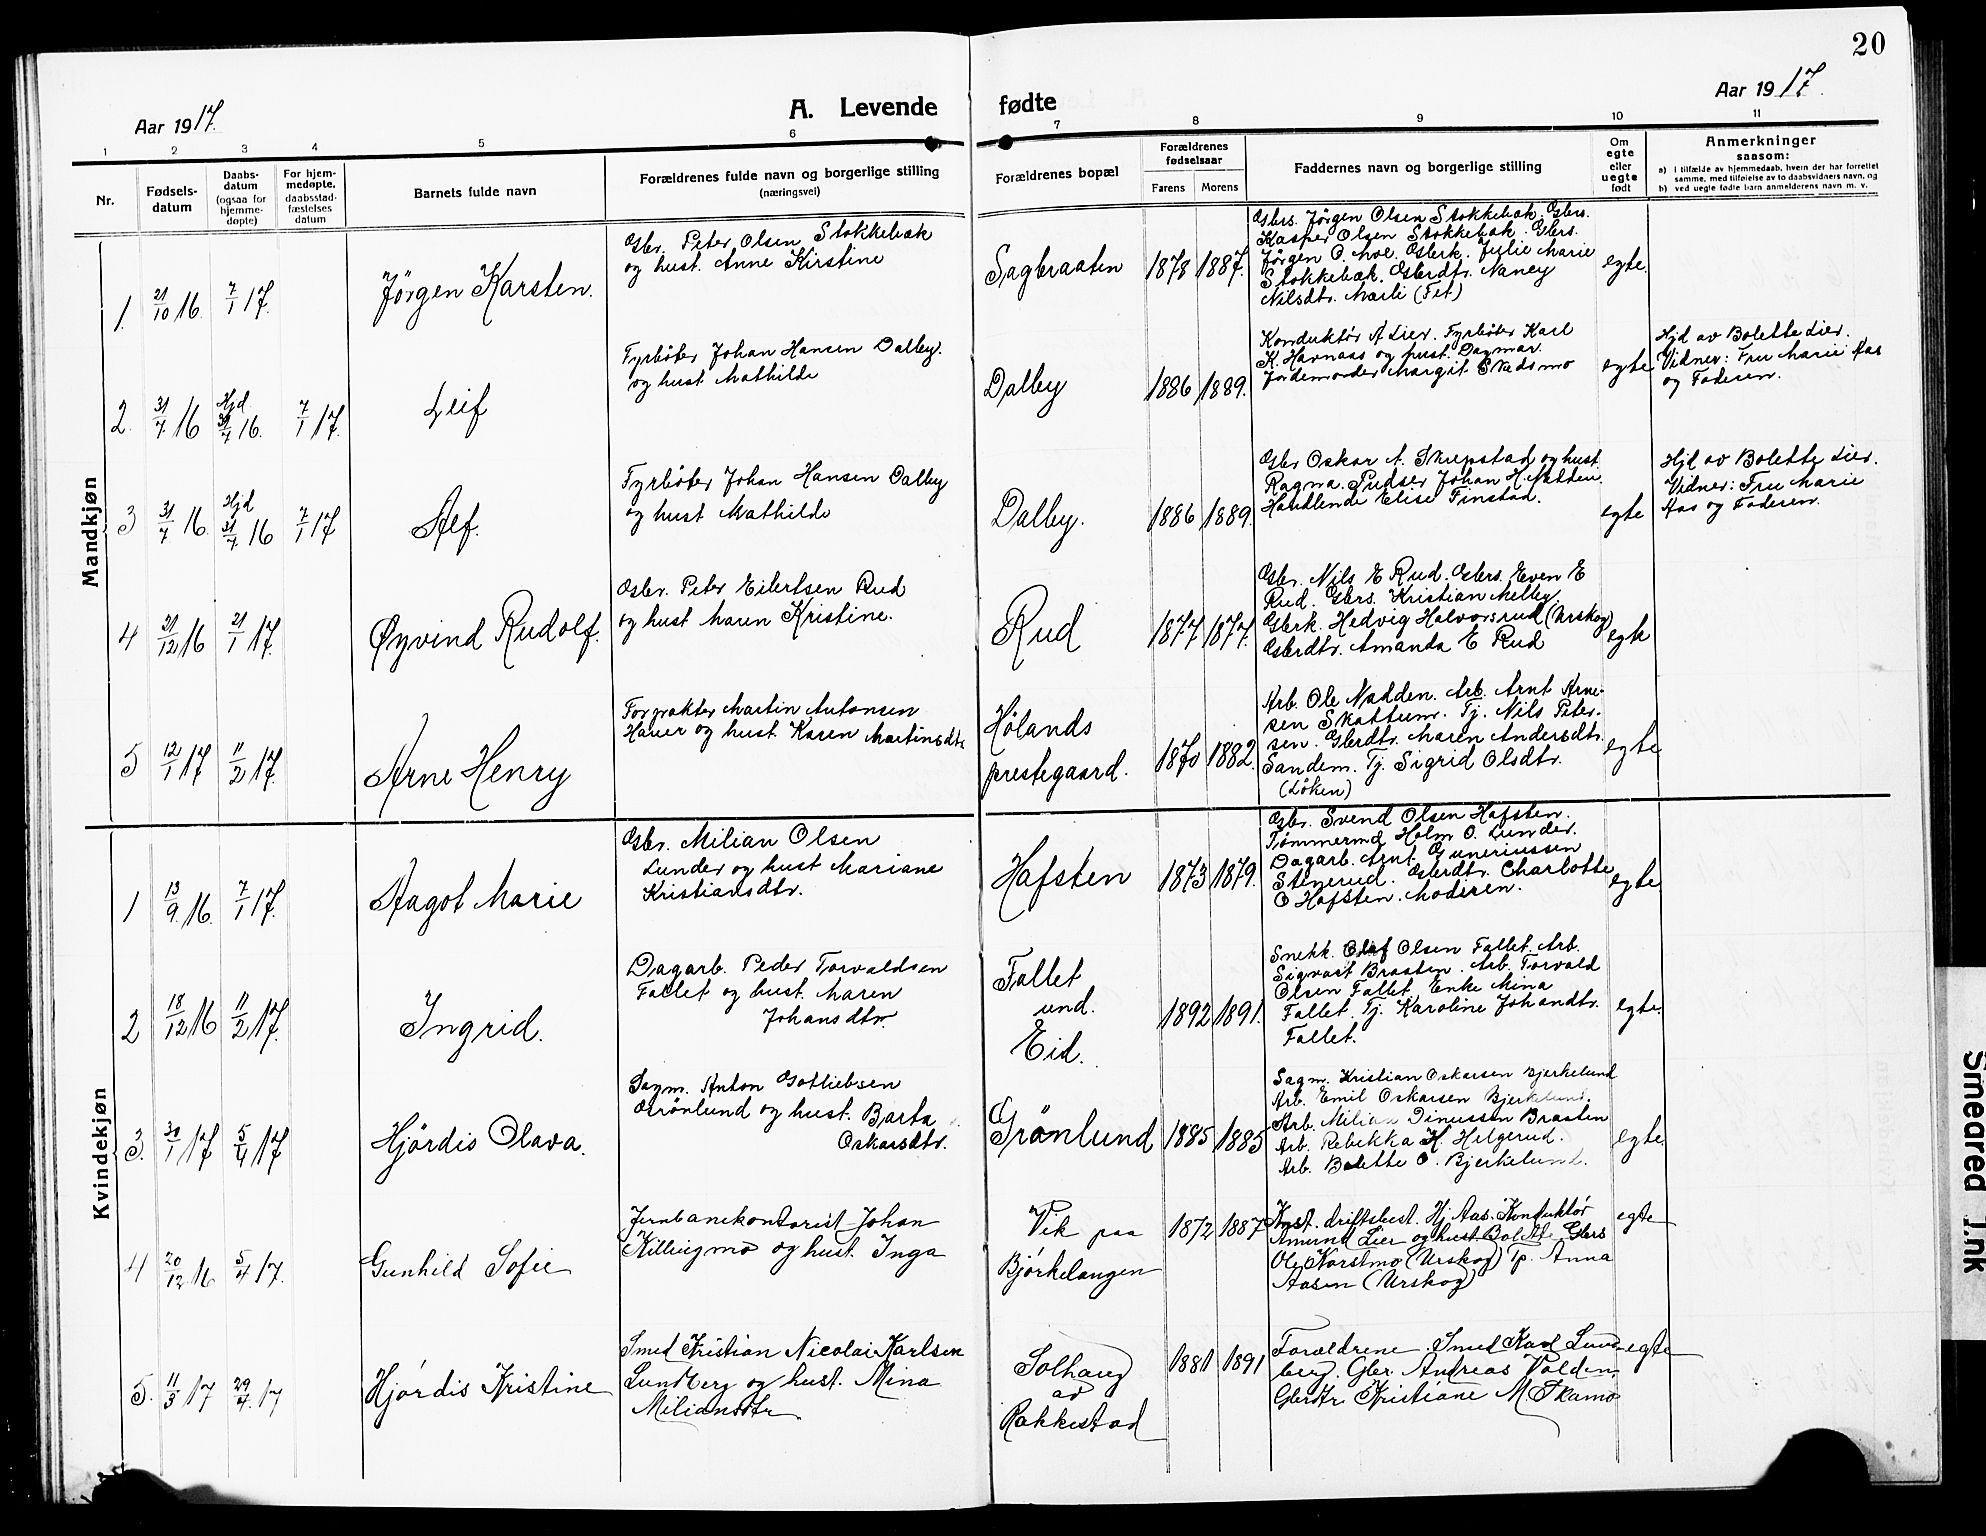 20
Aar 1917.
A. Levende fødte
Aar 1917.
1 2 3 4 5 6 7 8 9 10 11
Nr.
Fødsels-
datum
Daabs-
datum
(ogsaa for
hjemme-
døpte)
For hjem-
medøpte,
daabsstad-
fæstelses
datum
Barnets fulde navn
Forældrenes fulde navn og borgerlige stilling
(næringsvei)
Forældrenes bopæl
Forældrenes
fødselsaar
Farens Morens
Faddernes navn og borgerlige stilling
Om
egte
eller
uegte
født
Anmerkninger
saasom:
a) i tilfælde av hjemmedaab, hvem der har forrettet
samme, med tilføielse av to daabsvidners navn, og
b) ved uegte fødte barn anmelderens navn m. v.
Mandkjøn
1. 21/10 16. 7/1 17.
Jørgen Karsten.
Gbr. Peter Olsen Stokkebæk
og hust. Anne Kirstine
Sagbraaten
1878 1887.
Gbrs. Jørgen Olsen Stokkebæk. Gbrs.
Kasper Olsen Stokkebæk. Gbrs.
Jørgen O. Moe. Gbrk. Julie Marie
Stokkebæk. Gbrdtr. Nancy
Nilsdtr. Marli (Fet)
egte.
2. 31/7 16 Hjd 31/7 16. 7/1 17.
Leif
Fyrbøter Johan Hansen Dalby.
og hust Mathilde
Dalby
1886 1889.
Konduktør A Lier. Fyrbøter Karl
K. Havnaas og hust. Dagmar.
Jordemoder Margit Skedsmo
egte
Hjd av Bolette Lier.
Vidner: Fru Marie Aas
og Faderen.
3 31/7 16. Hjd 31/7 16 7/1 17
Alf.
Fyrbøter Johan Hansen Dalby
og hust Mathilde
Dalby.
1886 1889.
Gbr Oskar A. Skrepstad og hust.
Ragna. Pudser Johan H. Nadden
Handlende Elise Finstad.
egte
Hjd av Bolette Lier.
Vidner: Fru Marie
Aas og Faderen.
4 21/12 16 21/1 17.
Øyvind Rudolf.
Gbr. Peter Eilertsen Rud
og hust Maren Kristine.
Rud
1877 1877.
Gbr. Nils E Rud. Gbrs. Even E
Rud. Gbrs. Kristian Melby.
Gbrk. Hedvig Halvorsrud (Urskog)
Gbrdtr. Amanda E Rud
egte
5 12/1 17 11/2 17.
Arne Henry
Forpakter Martin Antonsen
Hauer og hust. Karen Martinsdtr.
Hølands
prestegaard.
1870 1882.
Arb. Ole Nadden. Arb. Arnt Arne-
sen Skattum. Tj. Nils Peter-
sen. Gbrdtr. Maren Andersdtr.
Sandem. Tj. Sigrid Olsdtr.
(Løken)
egte
Kvindekjøn
1 13/9 16. 7/1 17.
Aagot Marie
Gbr. Milian Olsen
Lunder og hust Mariane
Kristiansdtr.
Hafsten
1873 1879.
Gbr. Svend Olsen Hafsten.
Tømmermd Holm O. Lunder.
Dagarb. Arnt Guneriussen
Stenerud. Gbrdtr. Charlotte
O Hafsten. Moderen.
egte
2 18/12 16 11/2 17.
Ingrid.
Dagarb. Peder Torvaldsen
Fallet og hust. Maren
Johansdtr.
Fallet
und.
Eid.
1892 1891.
Snekk. Olaf Olsen Fallet. Arb.
Sigvart Braaten. Arb. Torvald
Olsen Fallet. Enke Mina
Fallet. Tj. Karoline Johandtr.
Fallet.
egte.
3. 30/1 17 5/4 17
Hjørdis Olava.
Sagm. Anton Gotliebsen
Grønlund og hust. Barta
Oskarsdtr.
Grønlund
1885 1885
Sagm. Kristian Oskarsen Bjerkelund
Arb. Emil Oskarsen Bjerkelund.
Arb. Milian Dinussen Braaten
Arb. Rebekka H. Helgerud.
Arb. Bolette O. Bjerkelund.
egte.
4 20/12 16 5/4 17.
Gunhild Sofie
Jernbanekontorist Johan
Killingmo og hust. Inga
Vik paa
Bjørkelangen
1872 1887
Kst. driftsbest. Hj. Aas. Konduktør
Amund Lier og hust Bolette. Gbrs
Ole Korstmo (Urskog) Tp. Anna
Aasen (Urskog)
egte
5. 11/3 17 29/4 17
Hjørdis Kristine
Smed Kristian Nicolai Karlsen
Lundberg og hust. Mina
Miliansdtr.
Solhaug
av
Rakkestad
1881 1891
Forældrene. Smed Karl Lund-
berg. Gbr. Andreas Volden,
Gbrdtr. Kristiane M. Skamo
egte
Smeared Ink